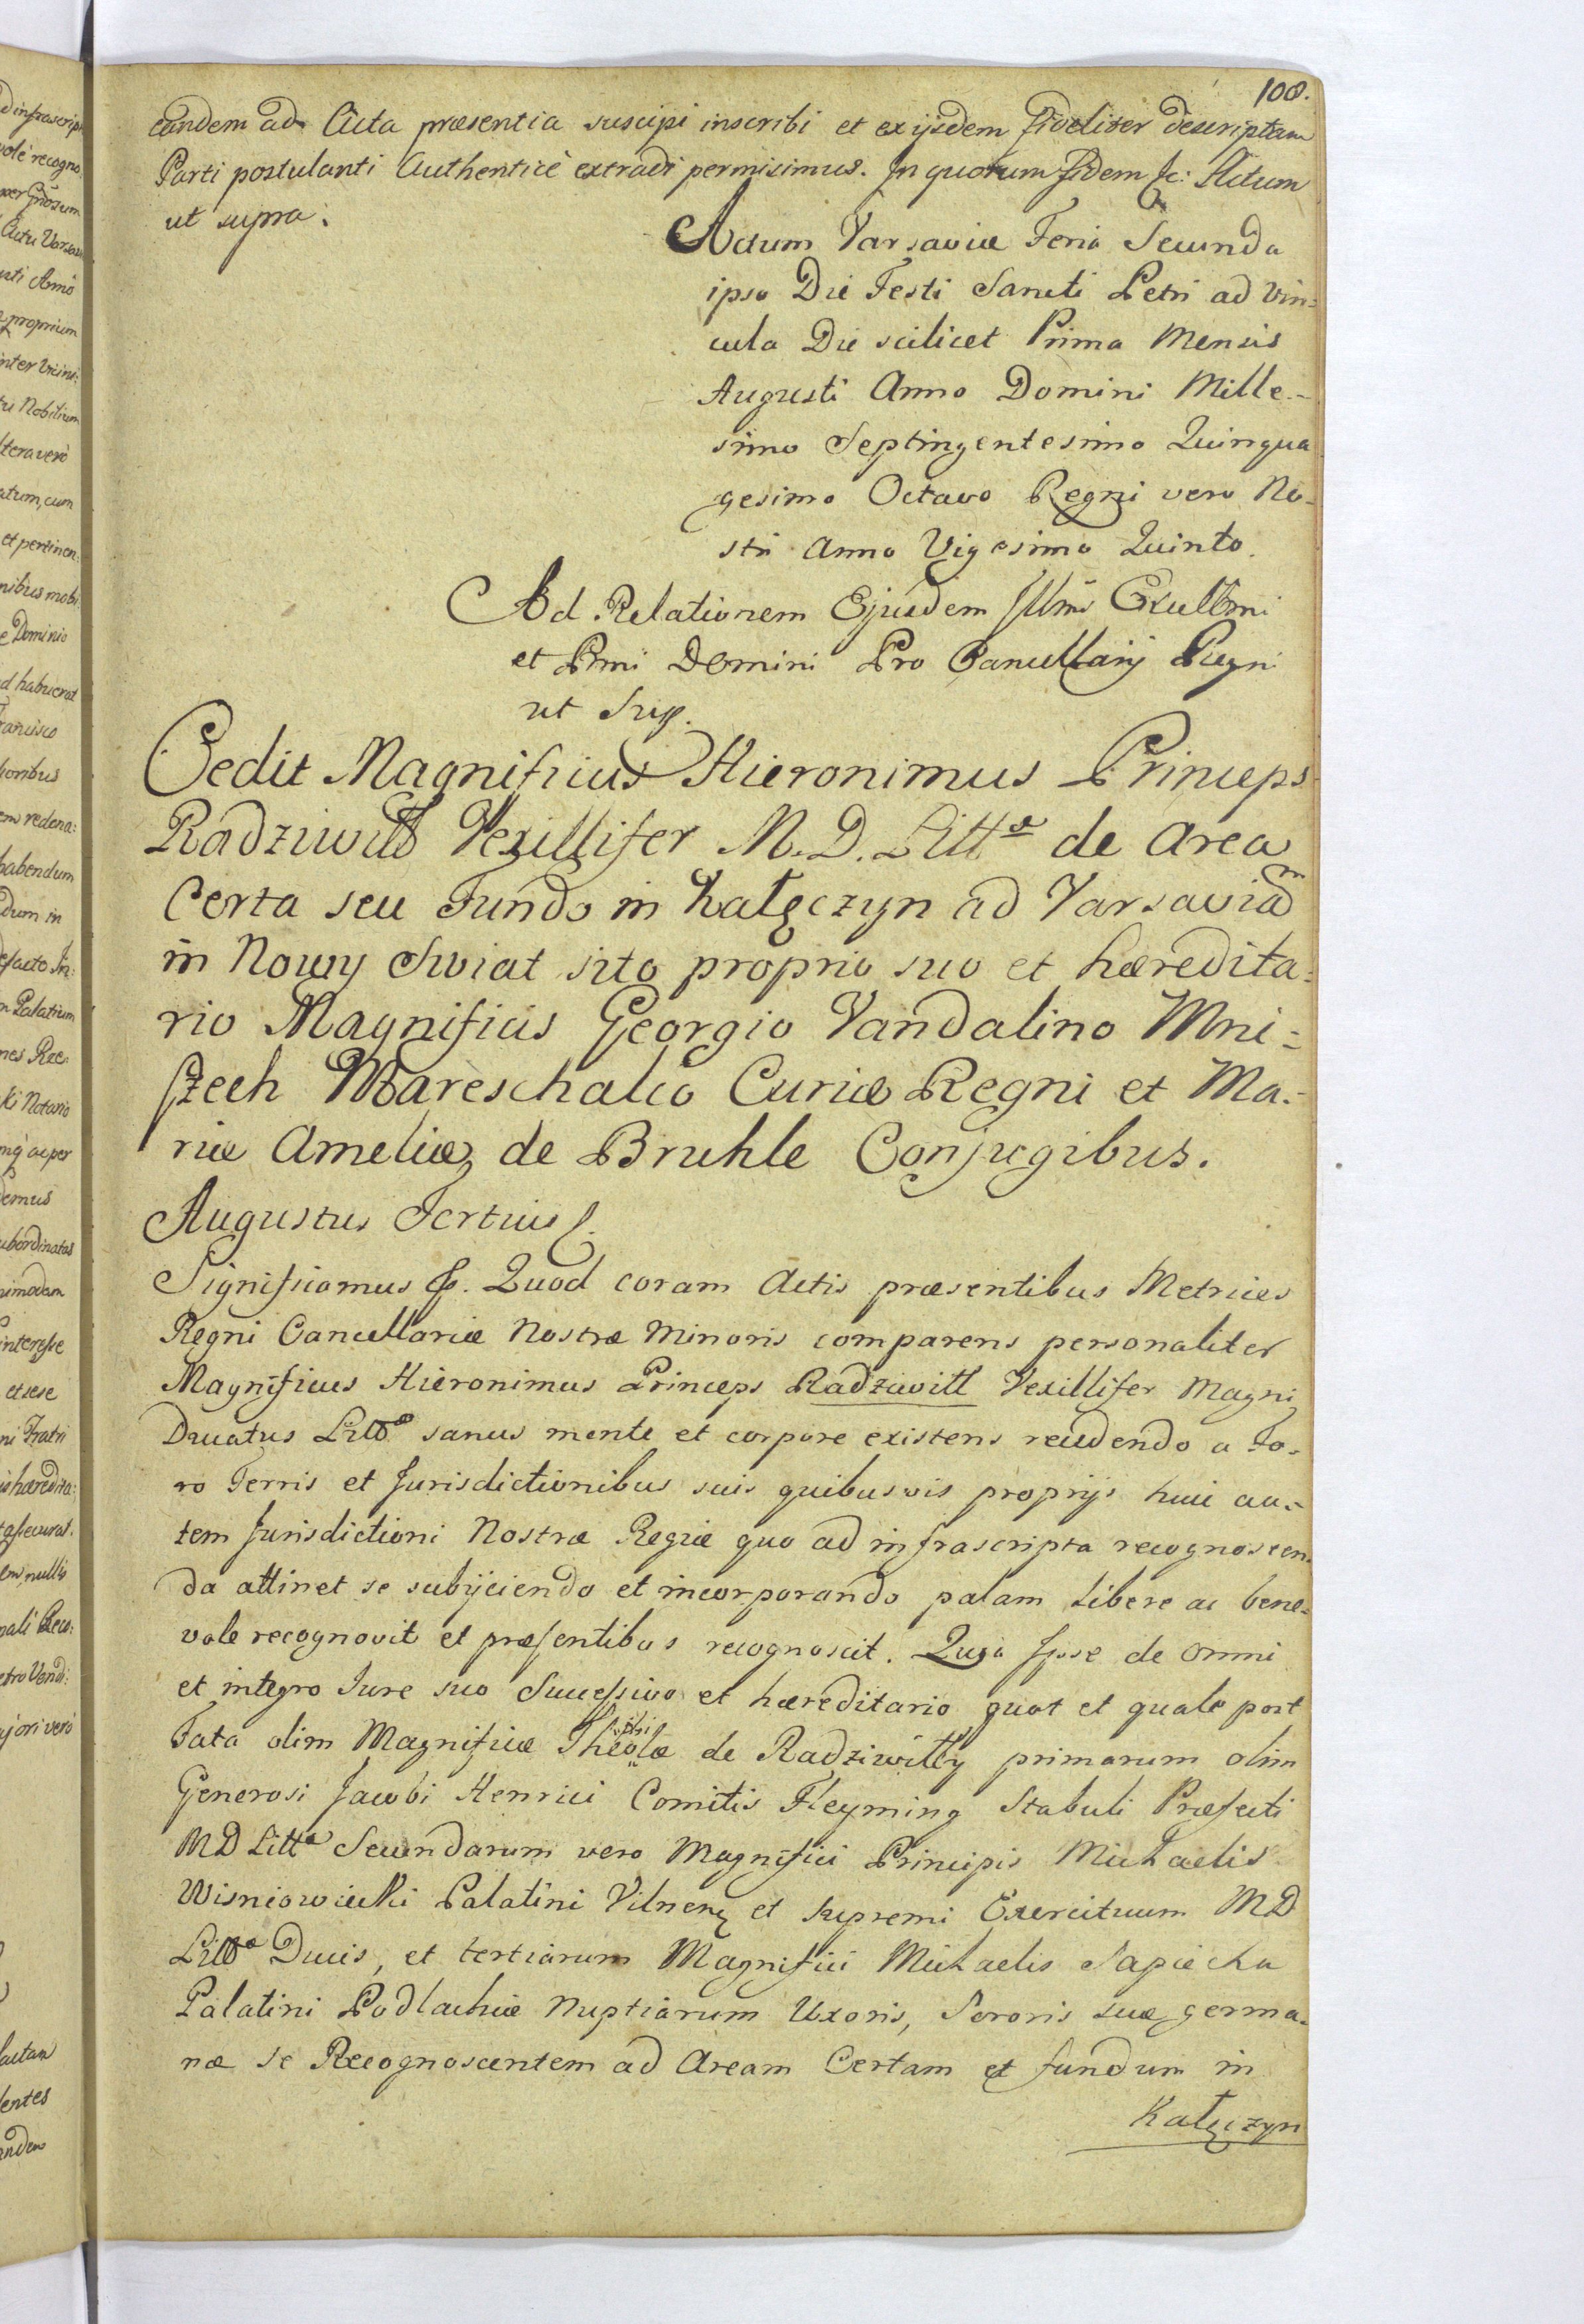 108.
eandem ad Acta præsentia suscipi inscribi et ex ijsdem fideliter descriptam
Parti postulanti Authenticè extradi permisimus. In quorum fidem &c: Actum
ut supra.
Actum Varsaviæ Feria Secunda
ipso Die Festi Sancti Petri ad Vin=
cula Die scilicet Prima Mensis
Augusti Anno Domini Mille-
simo Septingentesimo Quinqua
gesimo Octavo Regni vero No-
stri Anno Vigesimo Quinto.
Ad Relationem Ejusdem Illmi Excellmi
et Rmi Domini Pro Cancellarij Regni
ut Sup.
Cedit Magnificus Hieronimus Princeps
Radziwill Vexillifer M. D. Littæ de Area
Certa seu Fundo in Kałęczyn ad Varsaviam
in Nowy Swiat sito proprio suo et hæredita=
rio Magnificis Georgio Vandalino Mni=
szech Mareschalco Curiæ Regni et Ma=
riæ Ameliæ de Bruhle Conjugibus.
Augustus Tertius &.
Significamus &. Quod coram Actis præsentibus Metrices
Regni Cancellariæ Nostræ Minoris comparens personaliter
Magnificus Hieronimus Princeps Radziwill Vexillifer Magni
Ducatus Littæ sanus mente et corpore existens recedendo a Fo-
ro Terris et Jurisdictionibus suis quibusvis proprijs huic au=
tem Jurisdictioni Nostræ Regiæ quo ad infrascripta recognoscen=
da attinet se subijciendo et incorporando palam libere ac bene=
vole recognovit et præsentibus recognoscit. Quia Ipse de omni
et integro Jure suo Successivo et hæreditario quot et quale post
Fata olim Magnificæ Theophilæ de Radziwilly primarum olim
Generosi Jacobi Henrici Comitis Fleyming Stabuli Præfecti
M D Littæ Secundarum vero Magnifici Principis Michaelis
Wisniowiecki Palatini Vilnen et supremi Exercituum M D
Littæ Ducis, et tertiarum Magnifici Michaelis Sapiecha
Palatini Podlachiæ Nuptiarum Uxoris, Sororis suæ germa=
næ se Recognoscentem ad Aream Certam et fundum in
Kałęczyn